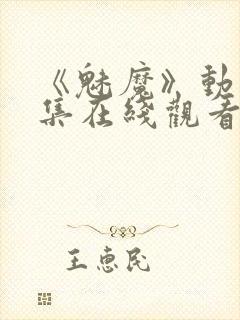 《魅魔》動
集在綫觀看
王惠民